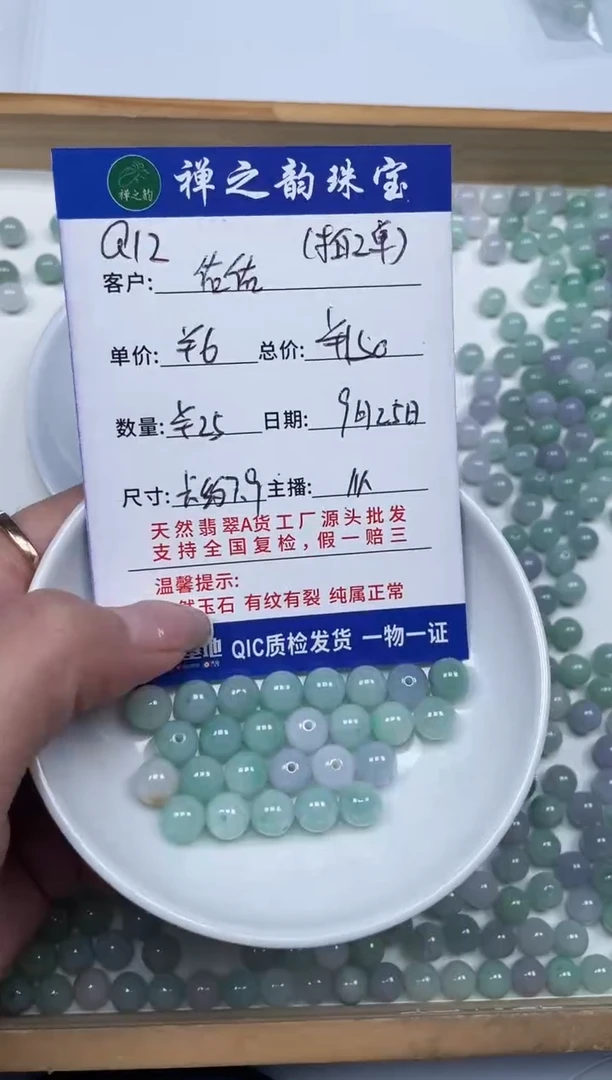 禅之韵
禅之韵珠宝
Q12 (拍2单)
客户: 佑佑
单价: ¥6 总价: ¥150
数量: ¥25 日期: 9月25日
尺寸: 长约7.9 主播:
天然翡翠A货工厂源头批发
支持全国复检,假一赔三
温馨提示:
然玉石 有纹有裂 纯属正常
基地 QIC质检发货 一物一证